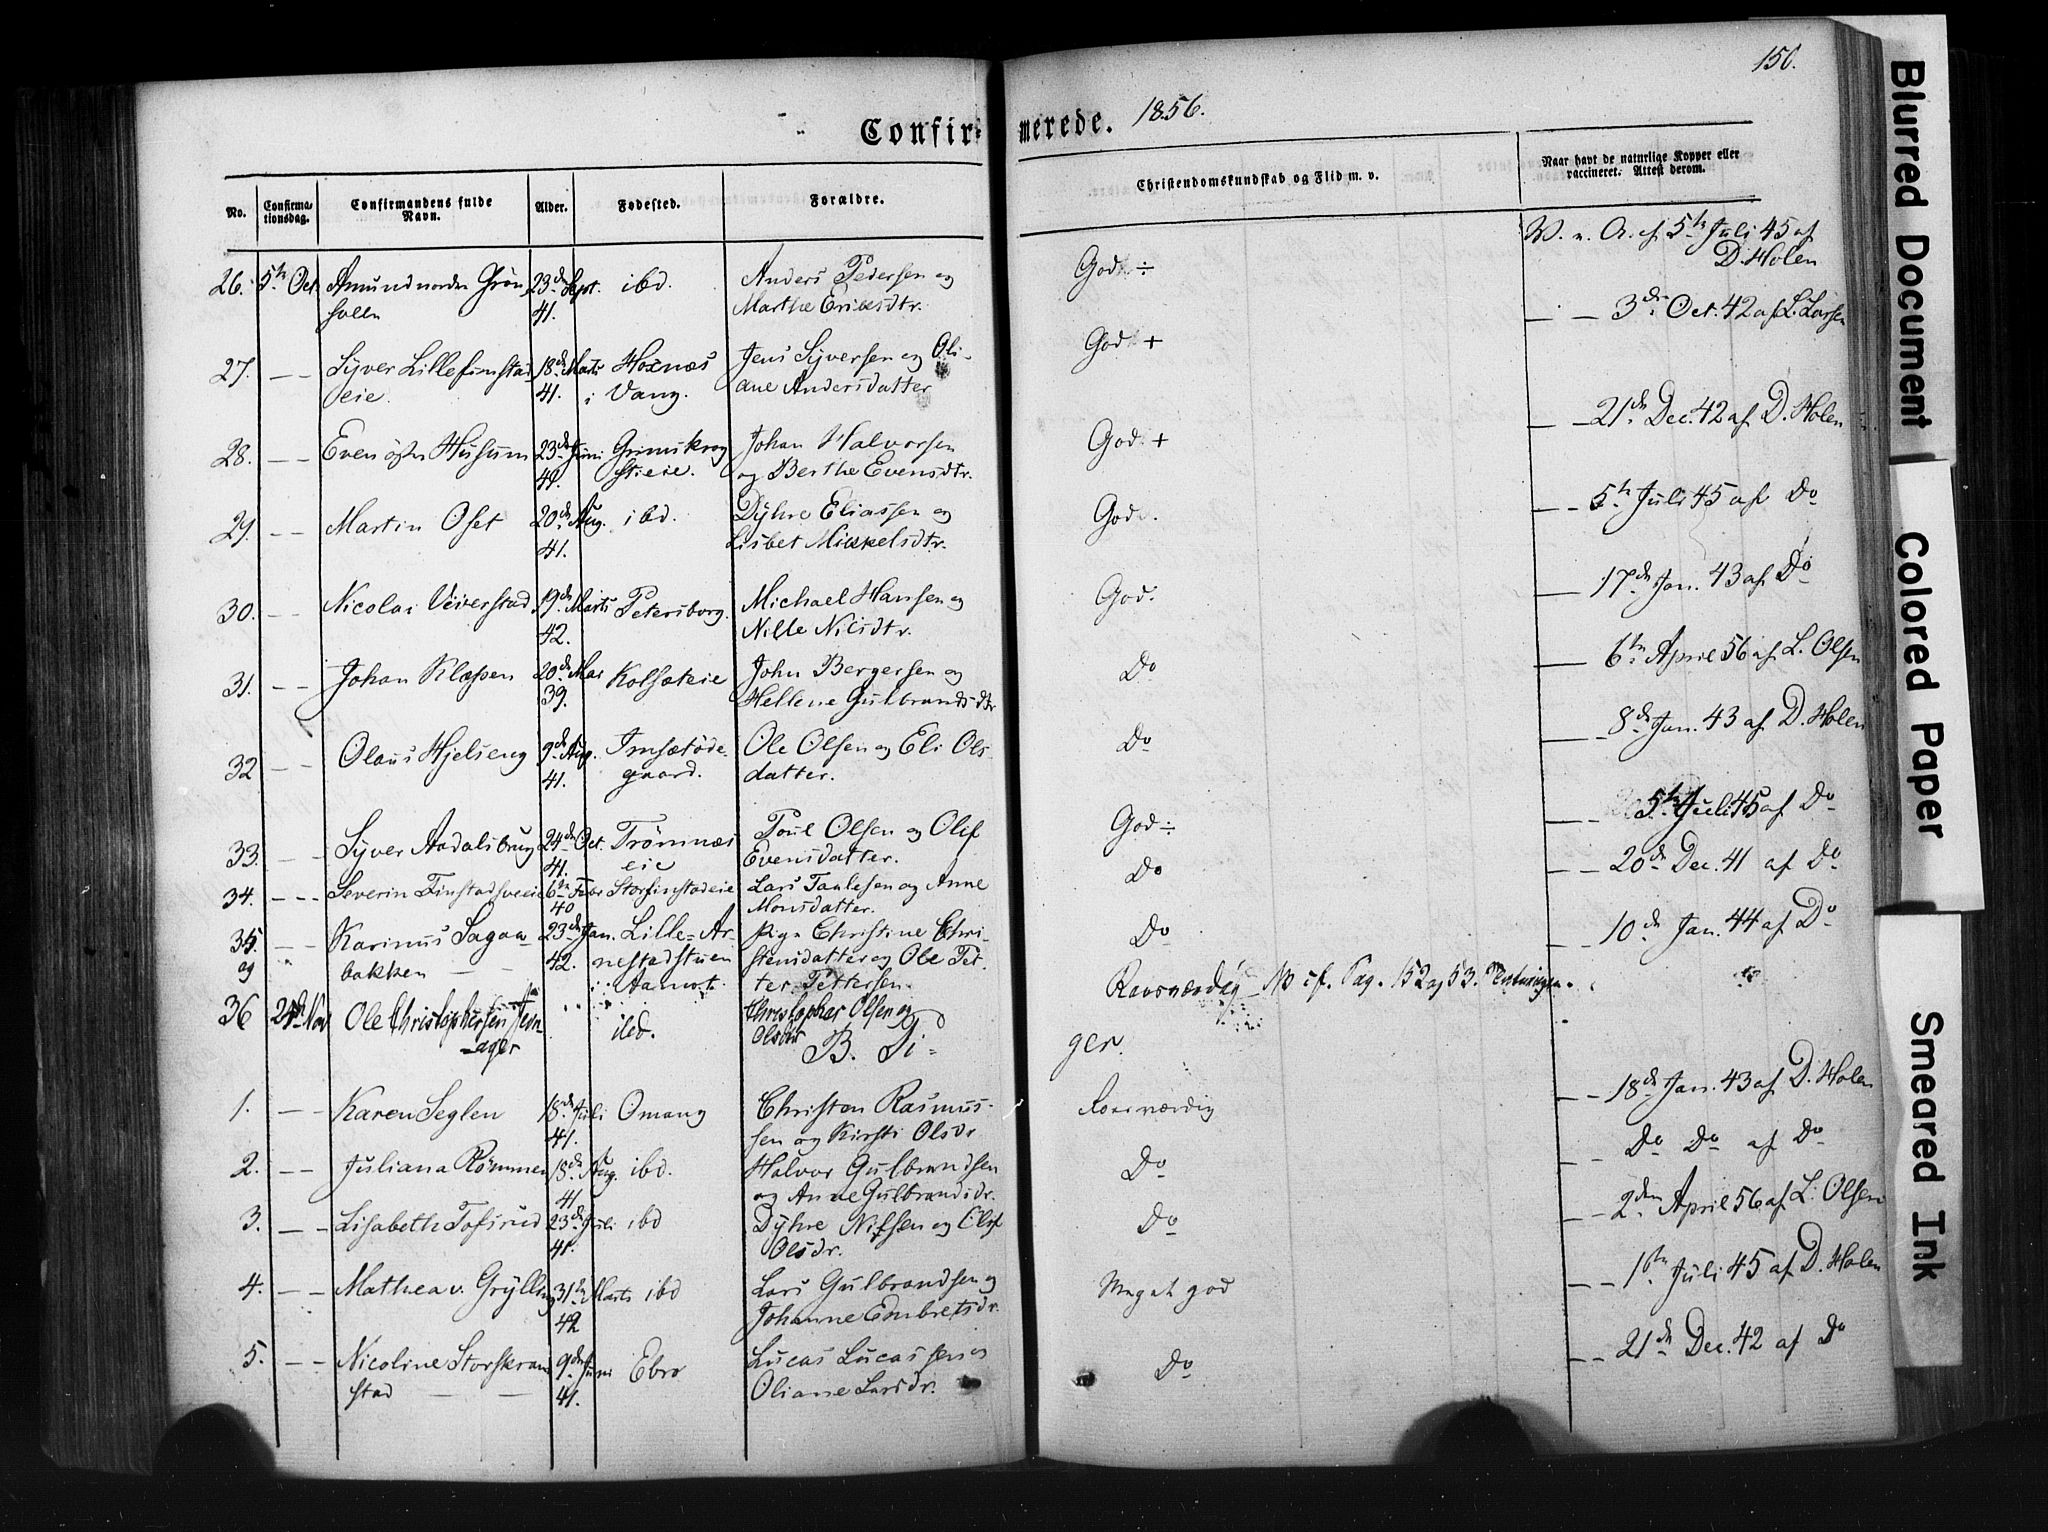 150.
Confirmerede. 1856.
No. Confirmationsdag. Confirmandens fulde Navn. Alder. Fødested. Forældre. Christendomskundskab og Flid m. v. Naar havt de naturlige Kopper eller vaccineret. Attest derom.
26. 5te Oct. Amund norden Grønsveen 23de Sept. 41. ibd. Anders Pedersen og Marthe Eriksdtr. God ÷ V. n. A. af 5te Juli 45 af D. Holen
27. — — Syver Lillefinstadeie. 18de Marts 41. Hoxnæs i Vang. Jens Syversen og Oliane Andersdatter God + — — 3die Oct. 42 af L. Larsen
28. — — Even østre Husum 23de Juni 41. Grimskrogstieie. Johan Halvorsen og Berthe Evensdtr. God + — — 21de Dec. 42 af D. Holen
29. — — Martin Oset 20de Aug. 41. ibd. Dyhre Eliassen og Lisbet Mikkelsdtr. God. — — 5te Juli 45 af Do
30. — — Nicolai Veiverstad 19de Marts 42. Petersborg. Michael Hansen og Nille Nilsdtr. God. — 17de Jan. 43 af Do
31. — — Johan Klæpen 20de Mai 39. Kolsæteie John Bergersen og Hellene Gulbrandsdtr Do — 6te April 56 af L. Olsen
32 — — Olaus Hjelseng 9de Aug. 41. Imsetødegaard. Ole Olsen og Eli Olsdatter. Do — 8de Jan. 43 af D. Holen
33. — — Syver Aadalsbrug 24de Oct. 41. Trømnæseie Poul Olsen og Olif Evensdatter. God ÷ — — 5te Juli 45 af Do
34. — — Severin Finstadsveeie 6te Febr 40 Storfinstadeie Lars Taalesen og Anne Monsdatter. Do — — 20de Dec. 41 af Do
35. — — Karinus Sagaabakken — — 23de Jan. 42. Lille-Arnestadstuen i Aamot. Pige Christine Christensdatter og Ole Petter Pettersen. Do — — 10de Jan. 44 af Do
og
36 Nov Ole Christophersen ibd. Christopher Olsen og Olsdtr Raosværdig NB cf. Pag. 152 og 53.
B. Piger.
1. — — Karen Seglen 18de Juli 41. Omang Christen Rasmussen og Kirsti Olsdr Roesværdig — — 18de Jan. 43 af D. Holen
2. — — Juliana Rømmen 18de Aug. 41 ibd. Halvor Gulbrandsen og Anne Gulbrandsdr. Do — Do Do af Do
3. — — Lisabeth Tofsrud 23de Juli 41. ibd Dyhre Nilsen og Olif Olsdr. Do — — 2den April 56 af L. Olsen
4. — — Mathea v. Grylling 31te Marts 42 ibd Lars Gulbrandsen og Johanne Embretsdr. Meget god — — 1ste Juli 45 af D. Holen
5. — — Nicoline Storskramstad — — 9de Juni 41. Ebro Lucas Lucassen og Oliane Larsdr. Do — — 21de Dec. 42 af Do
Blurred Document
Colored Paper
Smeared Ink